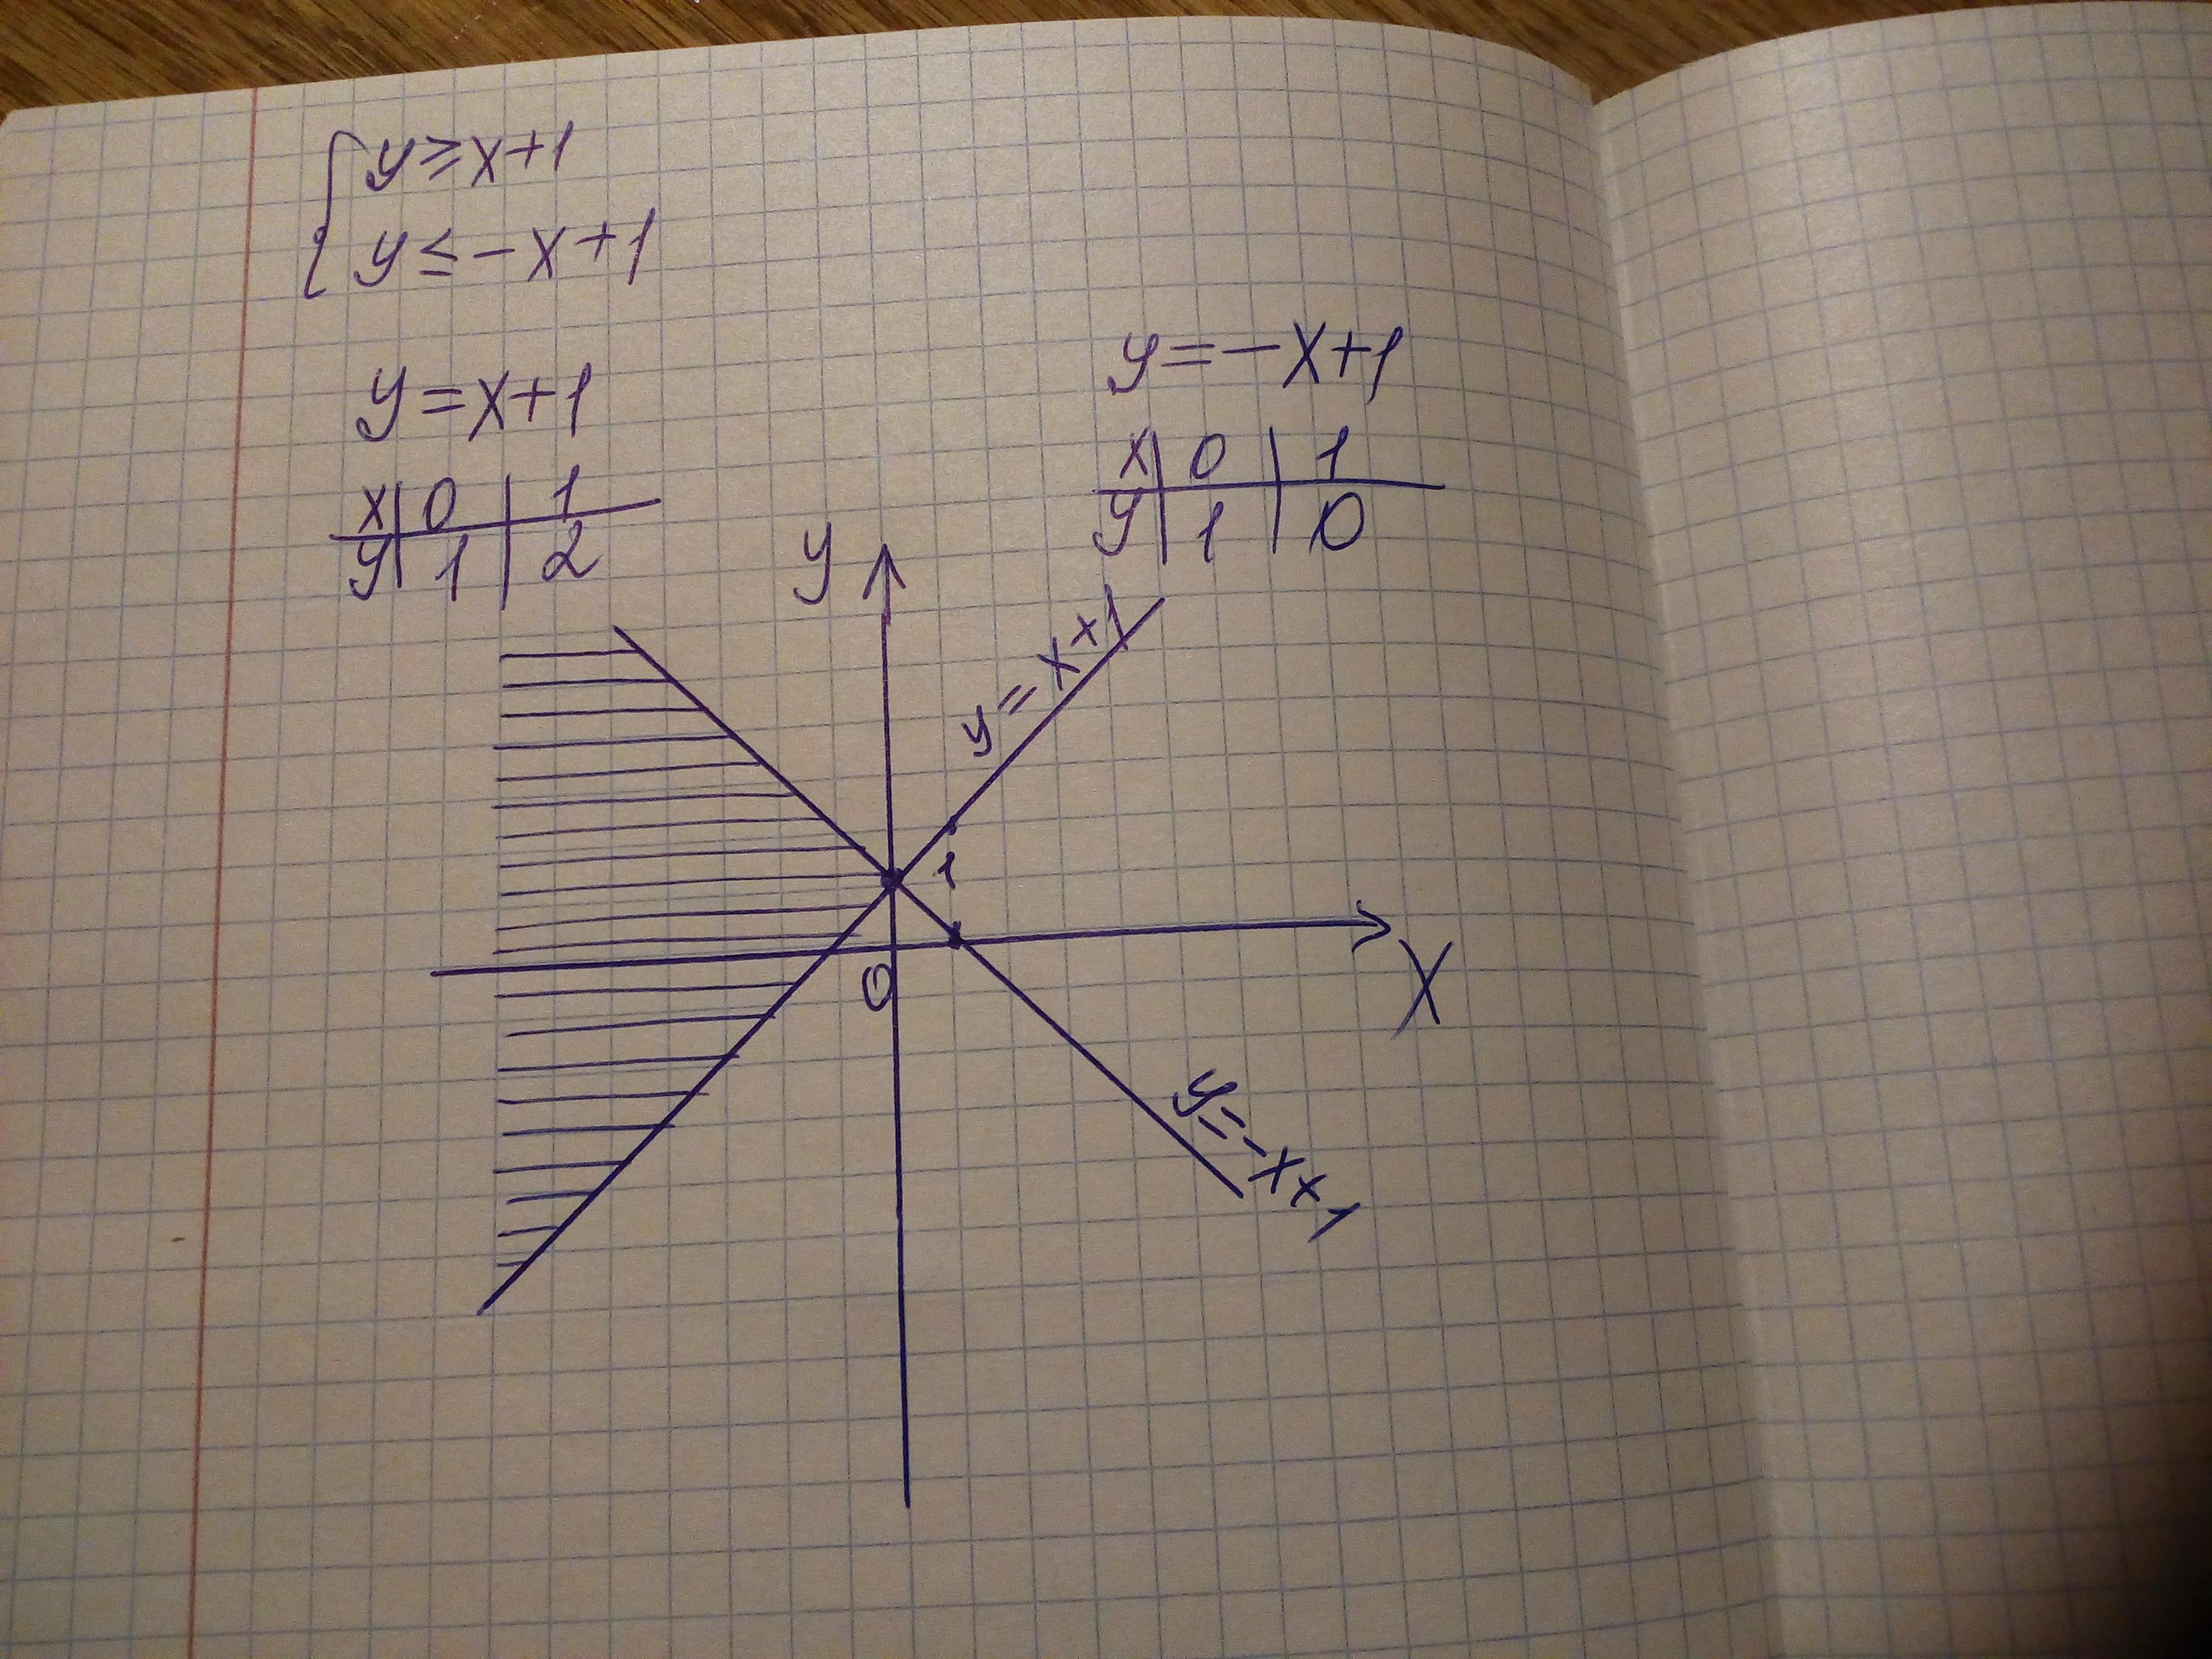 y≥x+1
y≤-x+1
y=x+1
x 0 1
y 1 2
y=-x+1
x 0 1
y 1 0
y
y=x+1
1
0
X
y=-x+1